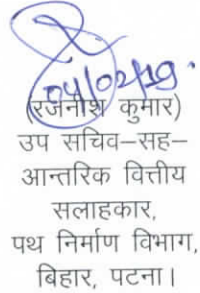 04/02/19.
(रजनीश कुमार)
उप सचिव–सह–
आन्तरिक वित्तीय
सलाहकार,
पथ निर्माण विभाग,
बिहार, पटना।